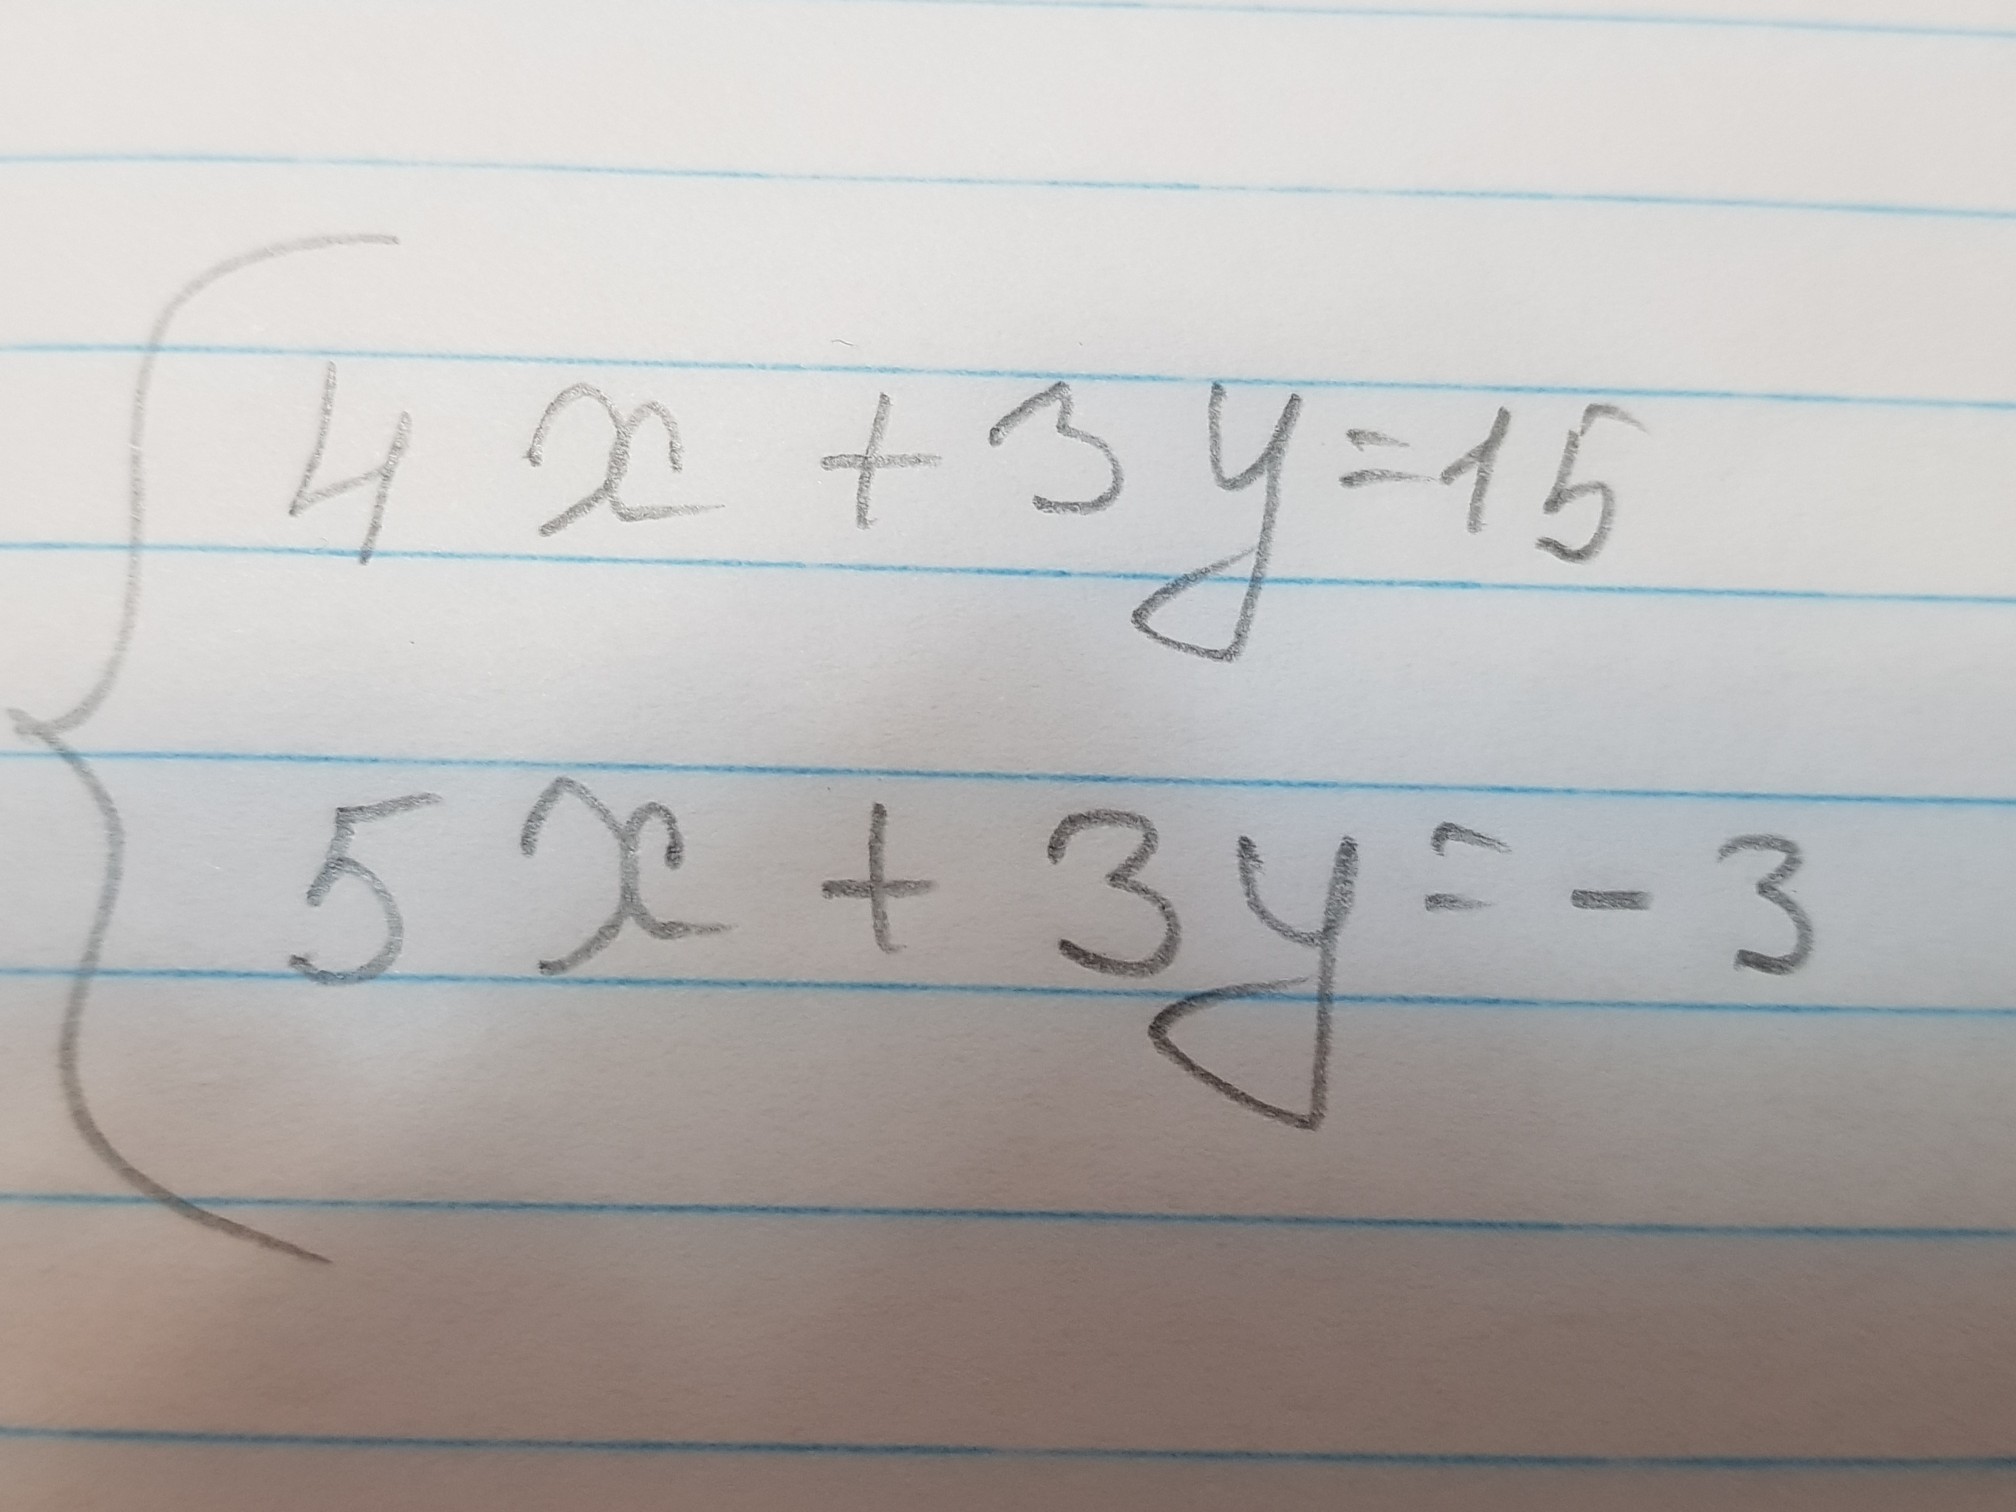 4x + 3y = 15
5x + 3y = - 3